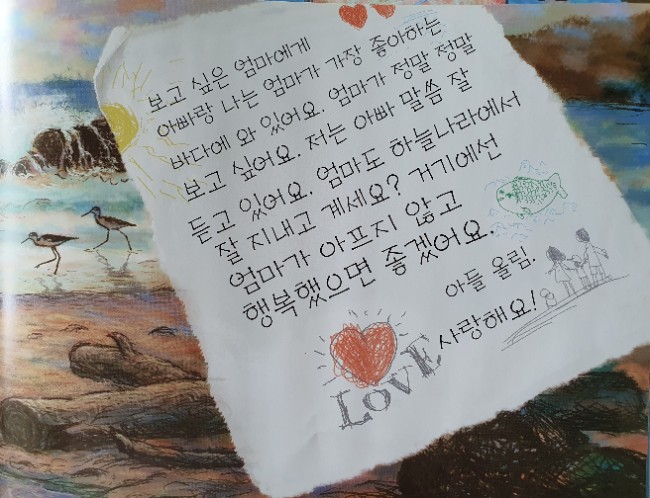 보고 싶은 엄마에게
아빠랑 나는 엄마가 가장 좋아하는
바다에 와 있어요. 엄마가 정말 정말
보고 싶어요. 저는 아빠 말씀 잘
듣고 있어요. 엄마도 하늘나라에서
잘 지내고 계세요? 거기에선
엄마가 아프지 않고
행복했으면 좋겠어요.
아들 올림.
사랑해요!
LOVE